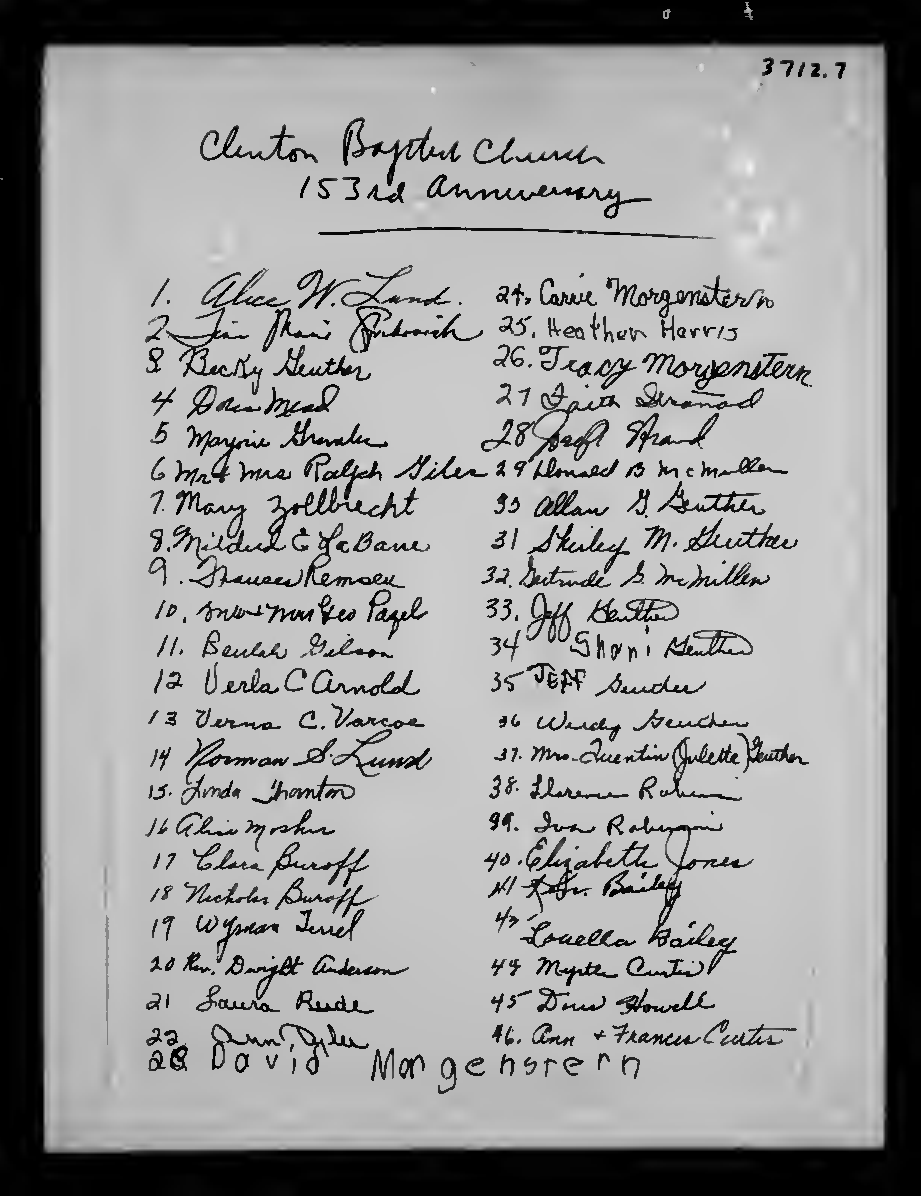 3712.7
Clinton Baptist Church
153rd Anniversary
1. Alice W. Lund.
2
3. Becky Genther
4 Doris Mead
5 Marjorie
6 Mr & Mrs Ralph Giles
7. Mary Zollbrecht
8. Mildred E LaBane
9. Frances Remsen
10. Mr & Mrs Geo Pagel
11. Beulah Gilson
12 Verla C Arnold
13 Verna C. Varcoe
14 Norman S Lund
15. Linda Thornton
16 Alice Mosher
17 Clara Buroff
18 Nicholas Buroff
19 Wyman Terrel
20 Rev. Dwight Anderson
21 Laura Rude
22 Ann Tyler
23 David Morgenstern
24. Carrie Morgenstern
25. Heathen Harris
26. Tracy Morgenstern
27 Faith
28
29 Donald B McMullen
30 Allan G. Genther
31 Shirley M. Genther
32. Gertrude G. McMillen
33. Jeff Genther
34 Shani Genther
35 JEFF Genther
36 Wendy Genther
37. Mrs. Quentin (Julette) Genther
38. Florence
39. Iva
40. Elizabeth Jones
41 Bailey
42 Louella Bailey
44 Myrtle Curtis
45 Doris Howell
46. Ann + Francis Curtis